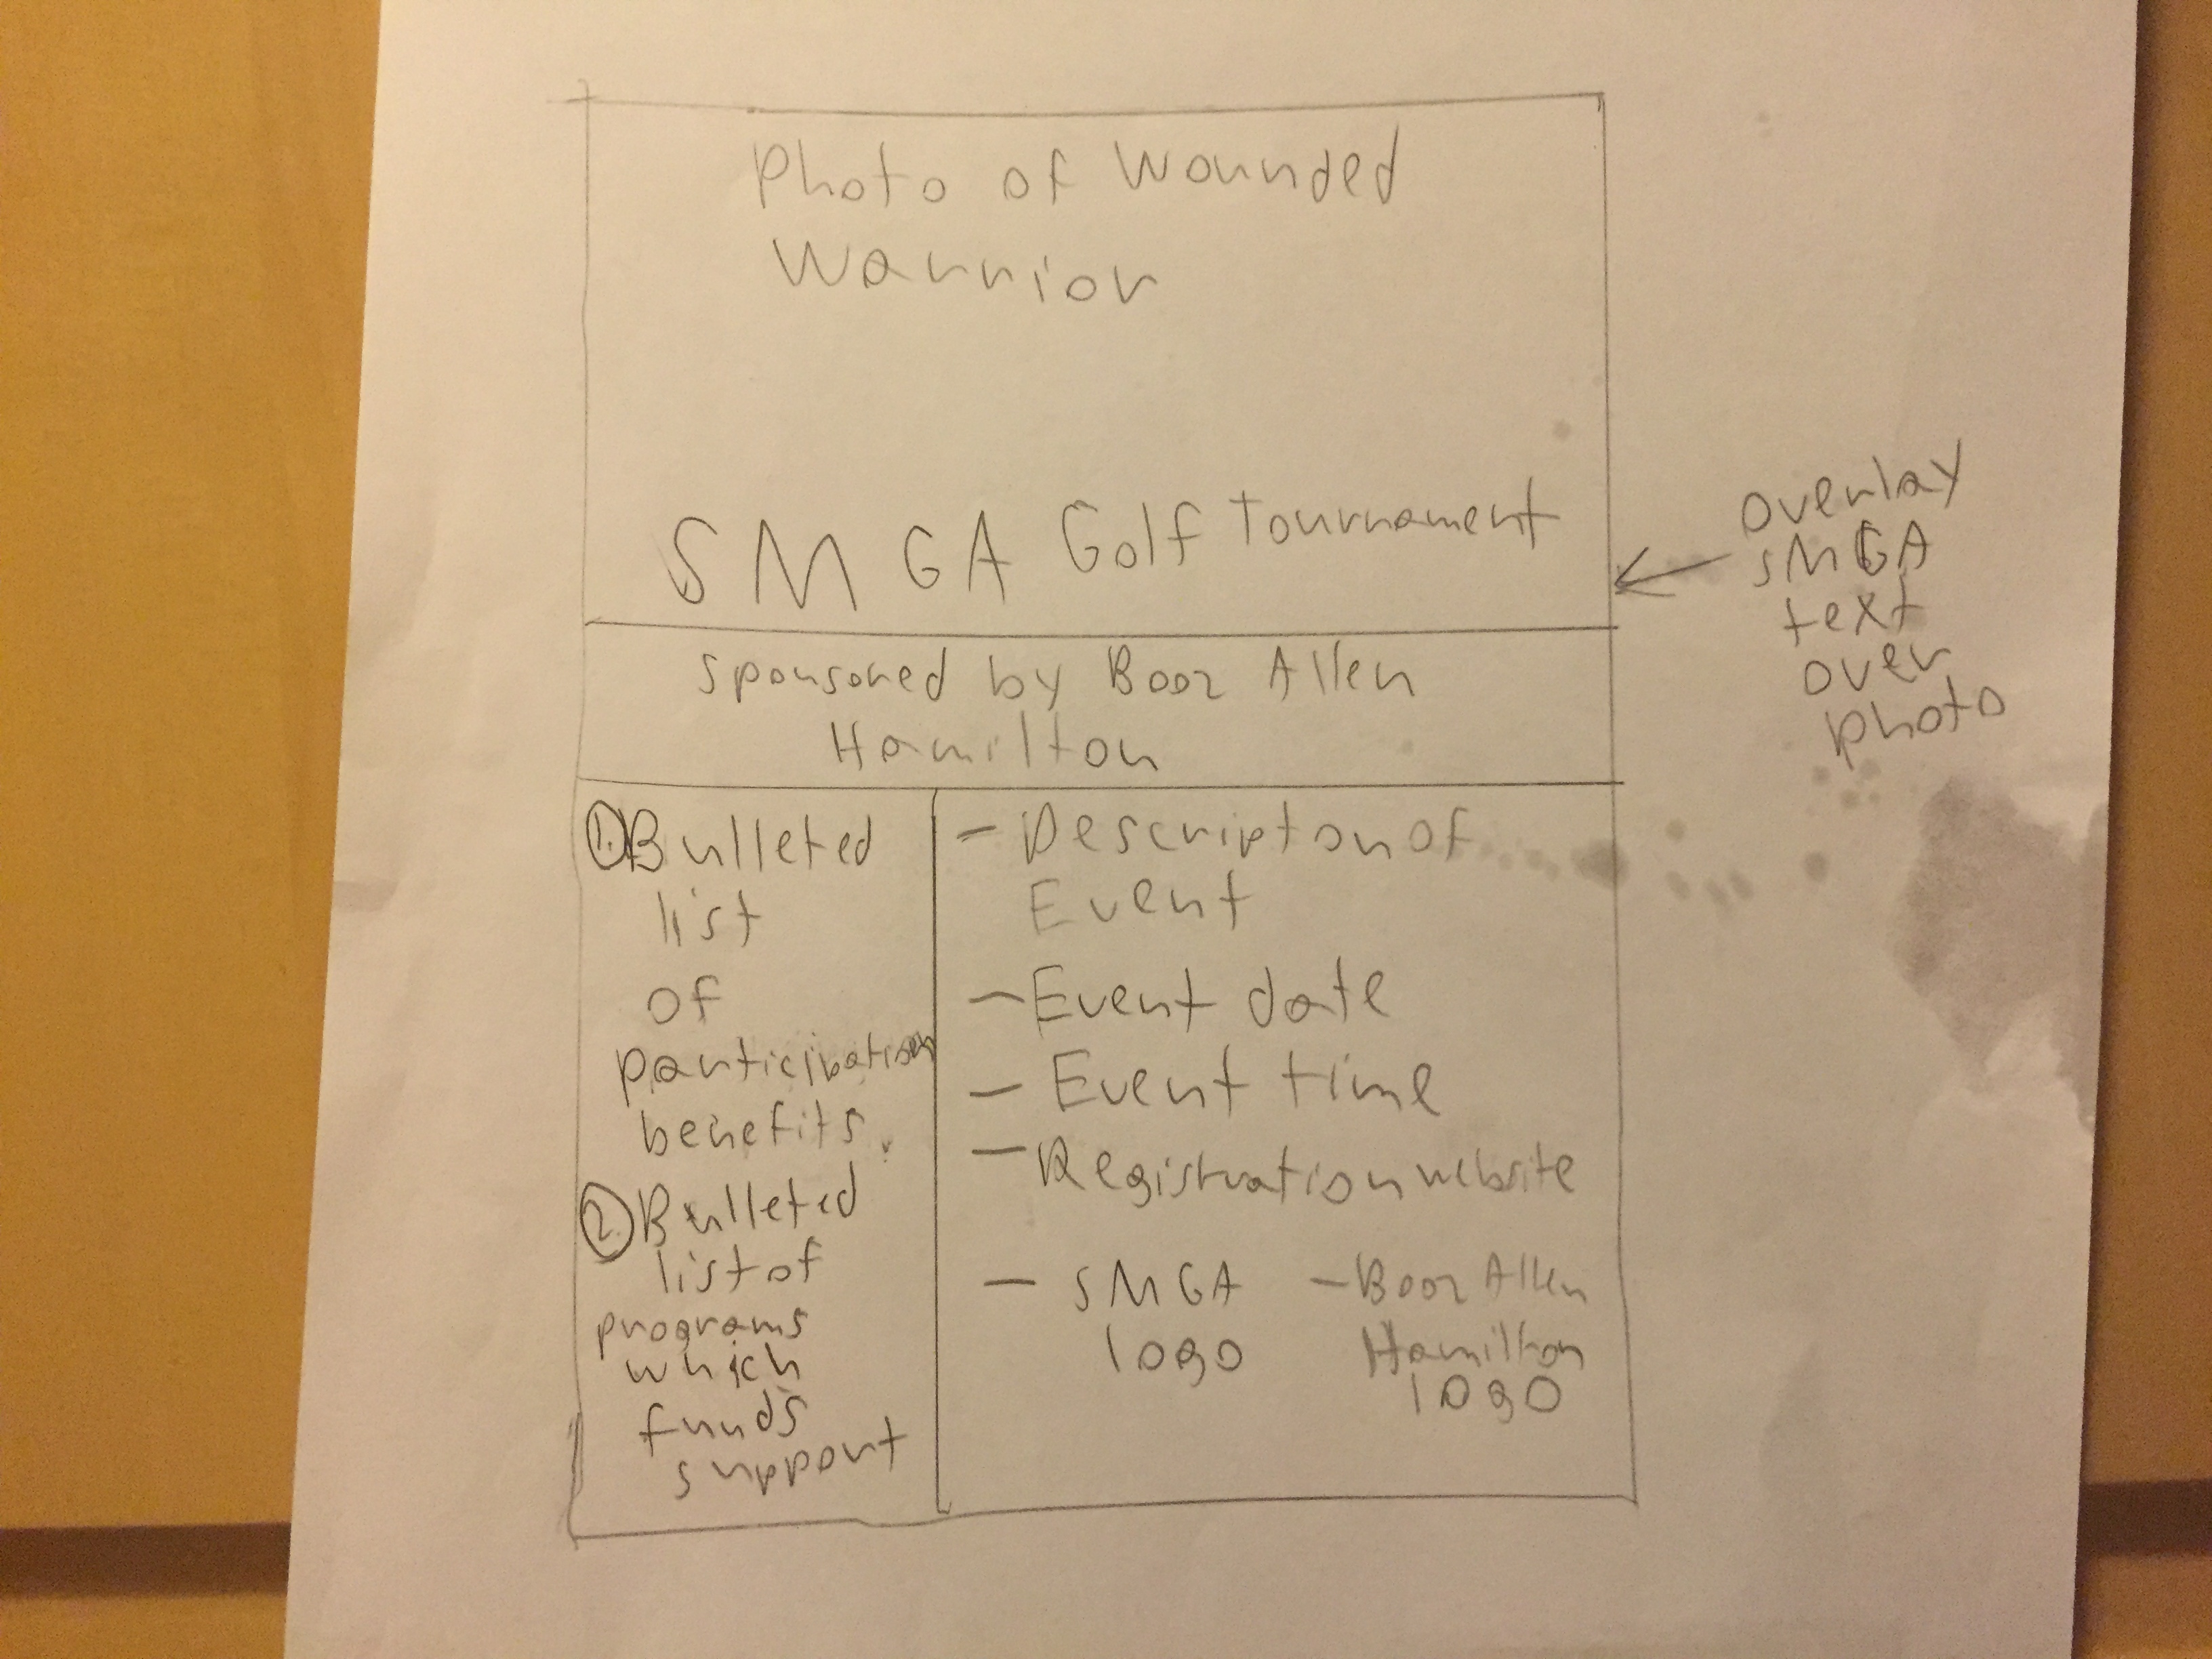 Photo of Wounded
Warrior
SMGA Golf Tournament
overlay
SMGA
text
over
photo
sponsored by Booz Allen
Hamilton
1. Bulleted
list
of
participation
benefits.
2. Bulleted
list of
programs
which
funds
support
- Descripton of
Event
- Event date
- Event time
- Registration website
- SMGA
logo
- Booz Allen
Hamilton
logo